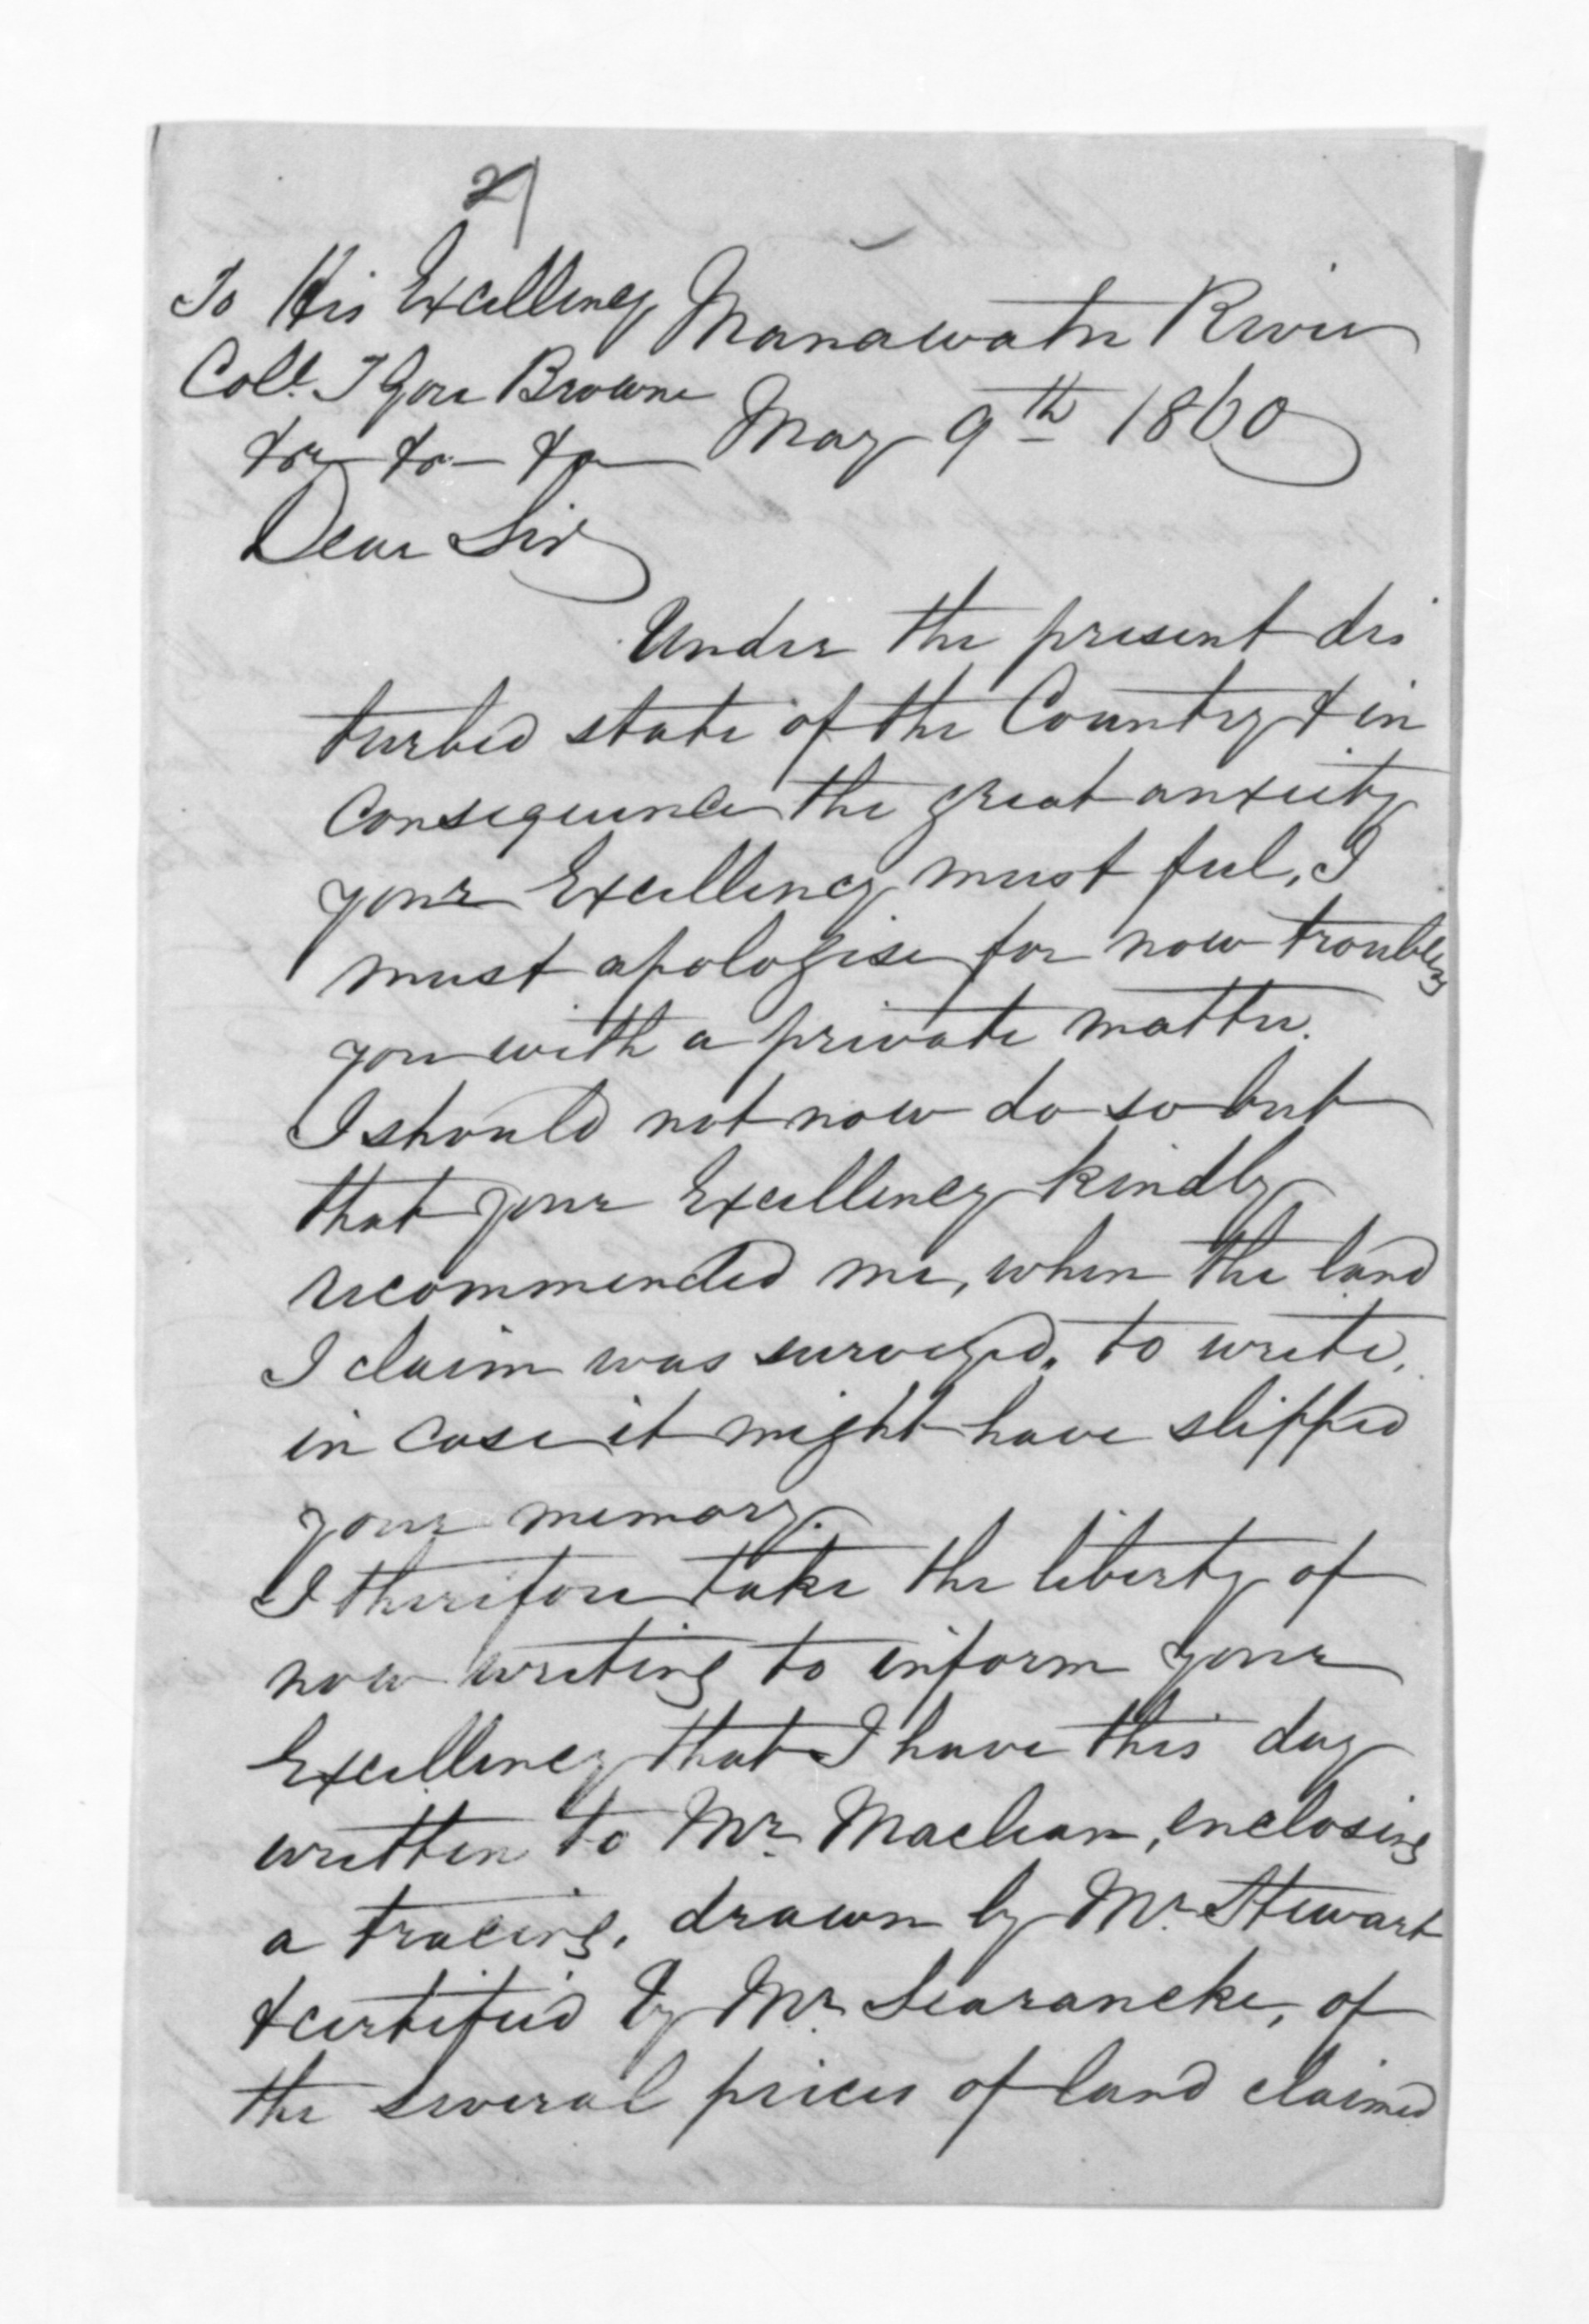 2/
To His Excellency
Coll. T Gore Browne
&c &c &c
Manawatu River
May 9th 1860
Dear Sir
Under the present dis
turbed state of the Country & in
Consequence the great anxiety
your Excellency must feel, I
must apologise for now troubling
you with a private matter.
I should not now do so but
that your Excellency kindly
recommended me, when the land
I claim was surveyed, to write,
in case it might have slipped
your memory.
I therefore take the liberty of
now writing to inform your
Excellency that I have this day
written to Mr. Maclean, enclosing
a tracing, drawn by Mr. Stewart
& certified by Mr. Searancke, of
the several pieces of land claimed